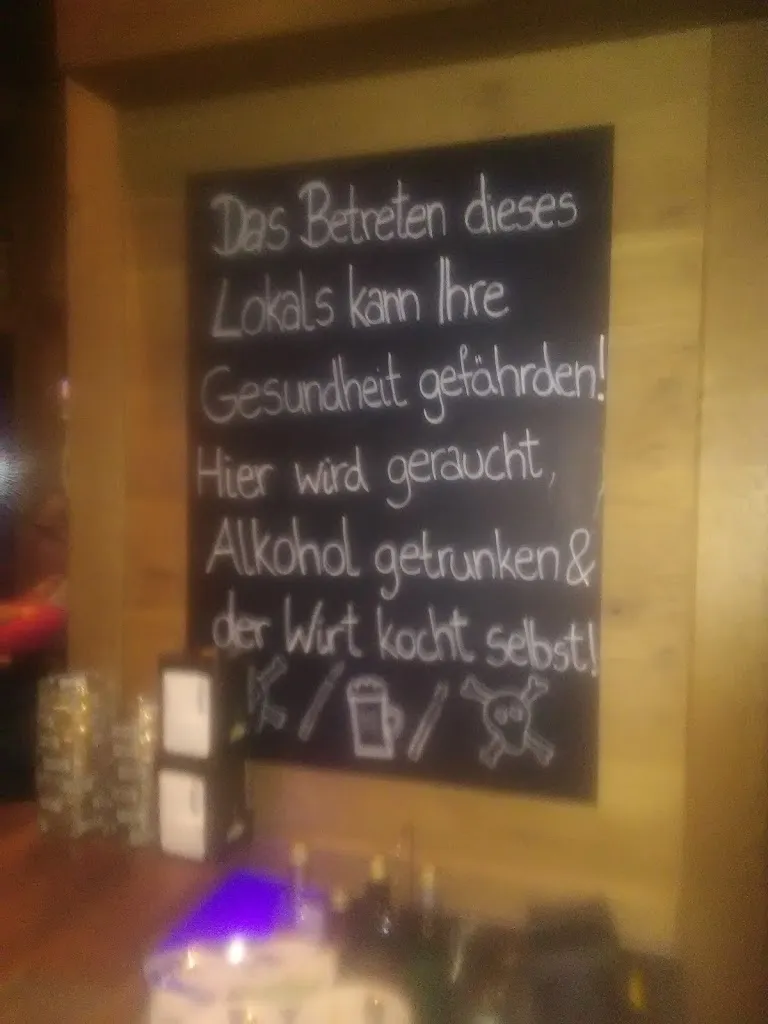 Das Betreten dieses
Lokals kann Ihre
Gesundheit gefährden!
Hier wird geraucht,
Alkohol getrunken &
der Wirt kocht selbst!